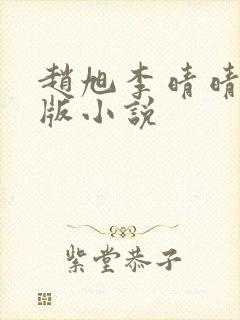 趙旭李晴晴
版小說
紫堂恭子